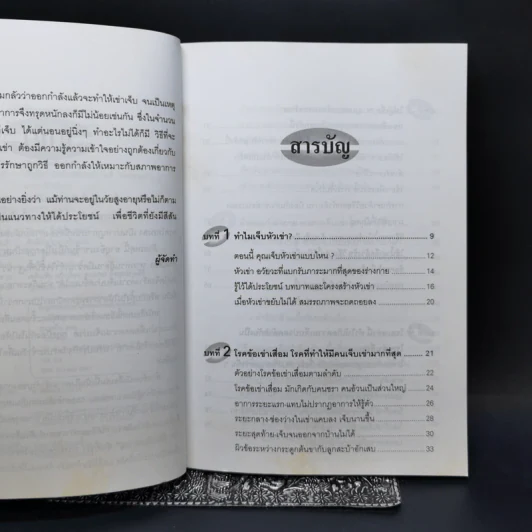 มกลัวว่าออกกำลังแล้วจะทำให้เข่าเจ็บ จนเป็นเหตุ
าการจึงทรุดหนักลงก็มีไม่น้อยเช่นกัน ซึ่งในจำนวน
จ็บ ได้แต่นอนอยู่นิ่งๆ ทำอะไรไม่ได้ก็มี วิธีที่จะ
ข่า ต้องมีความรู้ความเข้าใจอย่างถูกต้องเกี่ยวกับ
รรักษาถูกวิธี ออกกำลังให้เหมาะกับสภาพอาการ
อย่างยิ่งว่า แม้ท่านจะอยู่ในวัยสูงอายุหรือไม่ก็ตาม
ป็นแนวทางให้ได้ประโยชน์ เพื่อชีวิตที่ยังมีสีสัน
ผู้จัดทำ
สารบัญ
บทที่ 1 ทำไมเจ็บหัวเข่า? 9
ตอนนี้ คุณเจ็บหัวเข่าแบบไหน ? 12
หัวเข่า อวัยวะที่แบกรับภาระมากที่สุดของร่างกาย 14
รู้ไว้ได้ประโยชน์ บทบาทและโครงสร้างหัวเข่า 16
เมื่อหัวเข่าขยับไม่ได้ สมรรถภาพจะถดถอยลง 20
บทที่ 2 โรคข้อเข่าเสื่อม โรคที่ทำให้มีคนเจ็บเข่ามากที่สุด 21
ตัวอย่างโรคข้อเข่าเสื่อมตามลำดับ 22
โรคข้อเข่าเสื่อม มักเกิดกับคนชรา คนอ้วนเป็นส่วนใหญ่ 24
อาการระยะแรก-แทบไม่ปรากฏอาการให้รู้ตัว 26
ระยะกลาง-ช่องว่างในเข่าแคบลง เจ็บนานขึ้น 28
ระยะสุดท้าย-เจ็บจนออกจากบ้านไม่ได้ 30
ผิวข้อระหว่างกระดูกต้นขากับลูกสะบ้าอักเสบ 33